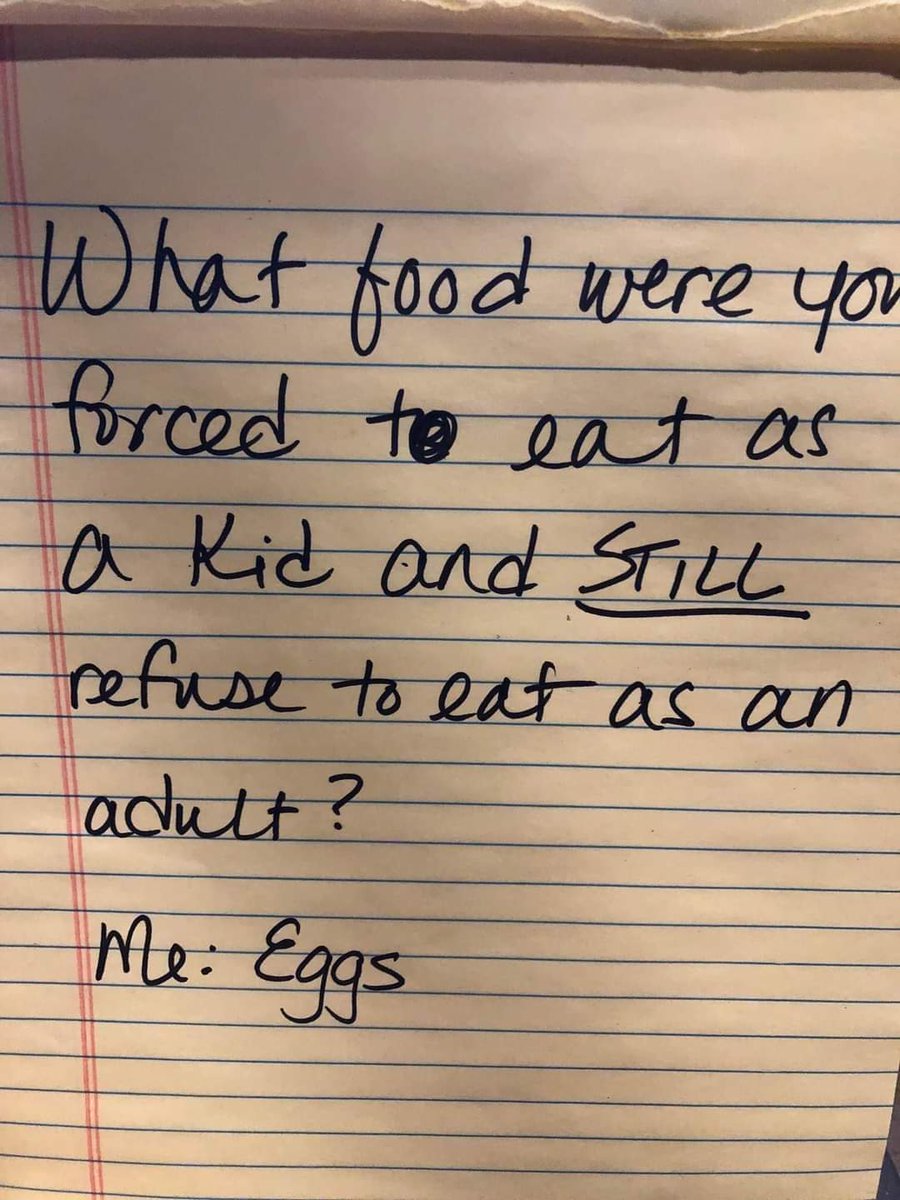 What food were you
forced to eat as
a kid and STILL
refuse to eat as an
adult?
Me: Eggs